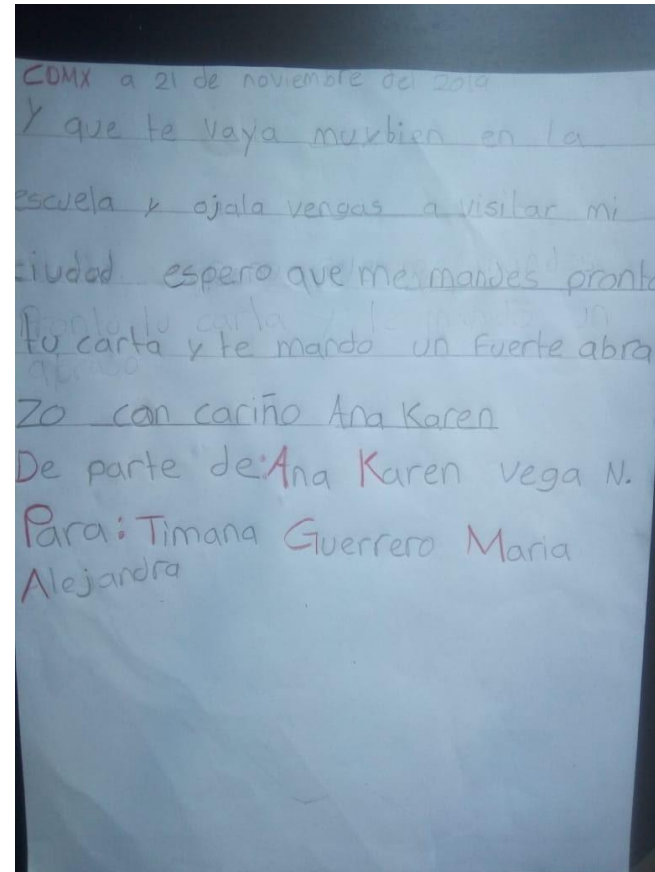 CDMX a 21 de noviembre del 2019
Y que te vaya muybien en la
escuela y ojala vengas a visitar mi
ciudad espero que me mandes pronto
tu carta y te mando un fuerte abra
zo con cariño Ana Karen
De parte de: Ana Karen Vega N.
Para: Timana Guerrero Maria
Alejandra